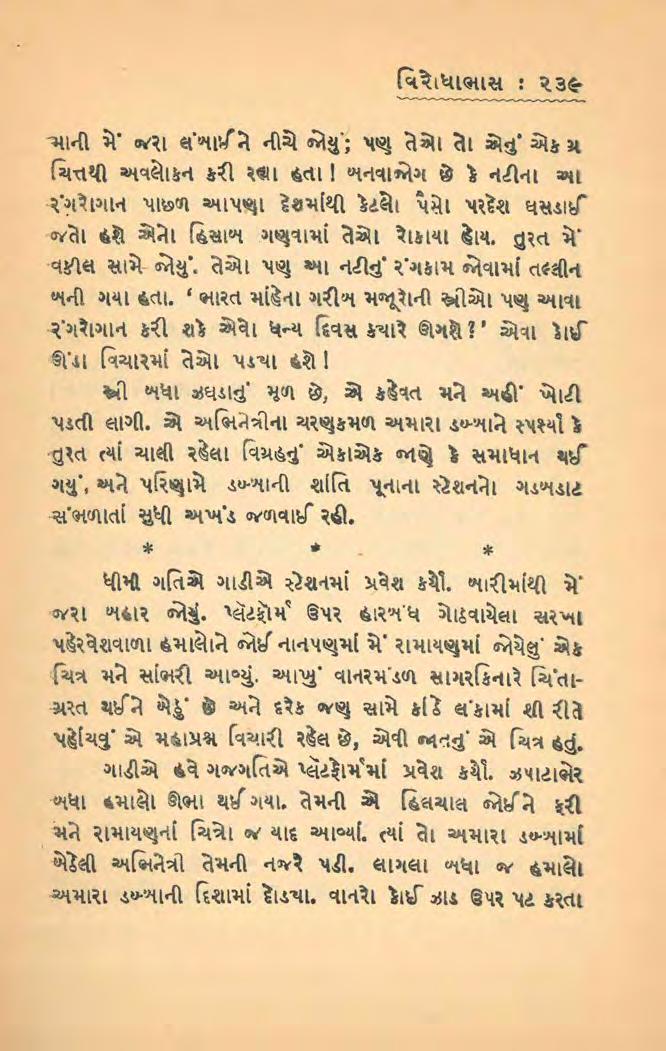 વિરોધાભાસ : ૨૩૯
માની મેં જરા લંબાઈને નીચે જોયું; પણ તેઓ તો એનું એકાગ્ર
ચિત્તથી અવલોકન કરી રહ્યા હતા! બનવાજોગ છે કે નટીના આ
રંગરોગાન પાછળ આપણા દેશમાંથી કેટલો પૈસો પરદેશ ઘસડાઈ
જતો હશે એનો હિસાબ ગણવામાં તેઓ રોકાયા હોય. તુરત મેં
વકીલ સામે જોયું. તેઓ પણ આ નટીનું રંગકામ જોવામાં તલ્લીન
બની ગયા હતા. ‘ ભારત માંહેના ગરીબ મજૂરોની સ્ત્રીઓ પણ આવા
રંગરોગાન કરી શકે એવો ધન્ય દિવસ ક્યારે ઊગશે?’ એવા કોઈ
ઊંડા વિચારમાં તેઓ પડ્યા હશે!
સ્ત્રી બધા ઝઘડાનું મૂળ છે, એ કહેવત મને અહીં ખોટી
પડતી લાગી. એ અભિનેત્રીના ચરણકમળ અમારા ડબ્બાને સ્પર્શ્યાં કે
તુરત ત્યાં ચાલી રહેલા વિગ્રહનું એકાએક જાણે કે સમાધાન થઈ
ગયું, અને પરિણામે ડબ્બાની શાંતિ પૂનાના સ્ટેશનનો ગડબડાટ
સંભળાતાં સુધી અખંડ જળવાઈ રહી.
* * *
ધીમી ગતિએ ગાડીએ સ્ટેશનમાં પ્રવેશ કર્યો. બારીમાંથી મેં
જરા બહાર જોયું. પ્લેટફોર્મ ઉપર હારબંધ ગોઠવાયેલા સરખા
પહેરવેશવાળા હમાલોને જોઈ નાનપણમાં મેં રામાયણમાં જોયેલું એક
ચિત્ર મને સાંભરી આવ્યું. આખું વાનરમંડળ સાગરકિનારે ચિંતા-
ગ્રસ્ત થઈને બેઠું છે અને દરેક જણ સામે કાંઠે લંકામાં શી રીતે
પહોંચવું એ મહાપ્રશ્ન વિચારી રહેલ છે, એવી જાતનું એ ચિત્ર હતું.
ગાડીએ હવે ગજગતિએ પ્લેટફોર્મમાં પ્રવેશ કર્યો. ઝપાટાભેર
બધા હમાલો ઊભા થઈ ગયા. તેમની એ હિલચાલ જોઈને ફરી
મને રામાયણનાં ચિત્રો જ યાદ આવ્યાં. ત્યાં તો અમારા ડબ્બામાં
બેઠેલી અભિનેત્રી તેમની નજરે પડી. લાગલા બધા જ હમાલો
અમારા ડબ્બાની દિશામાં દોડ્યા. વાનરો કોઈ ઝાડ ઉપર પટ કરતા